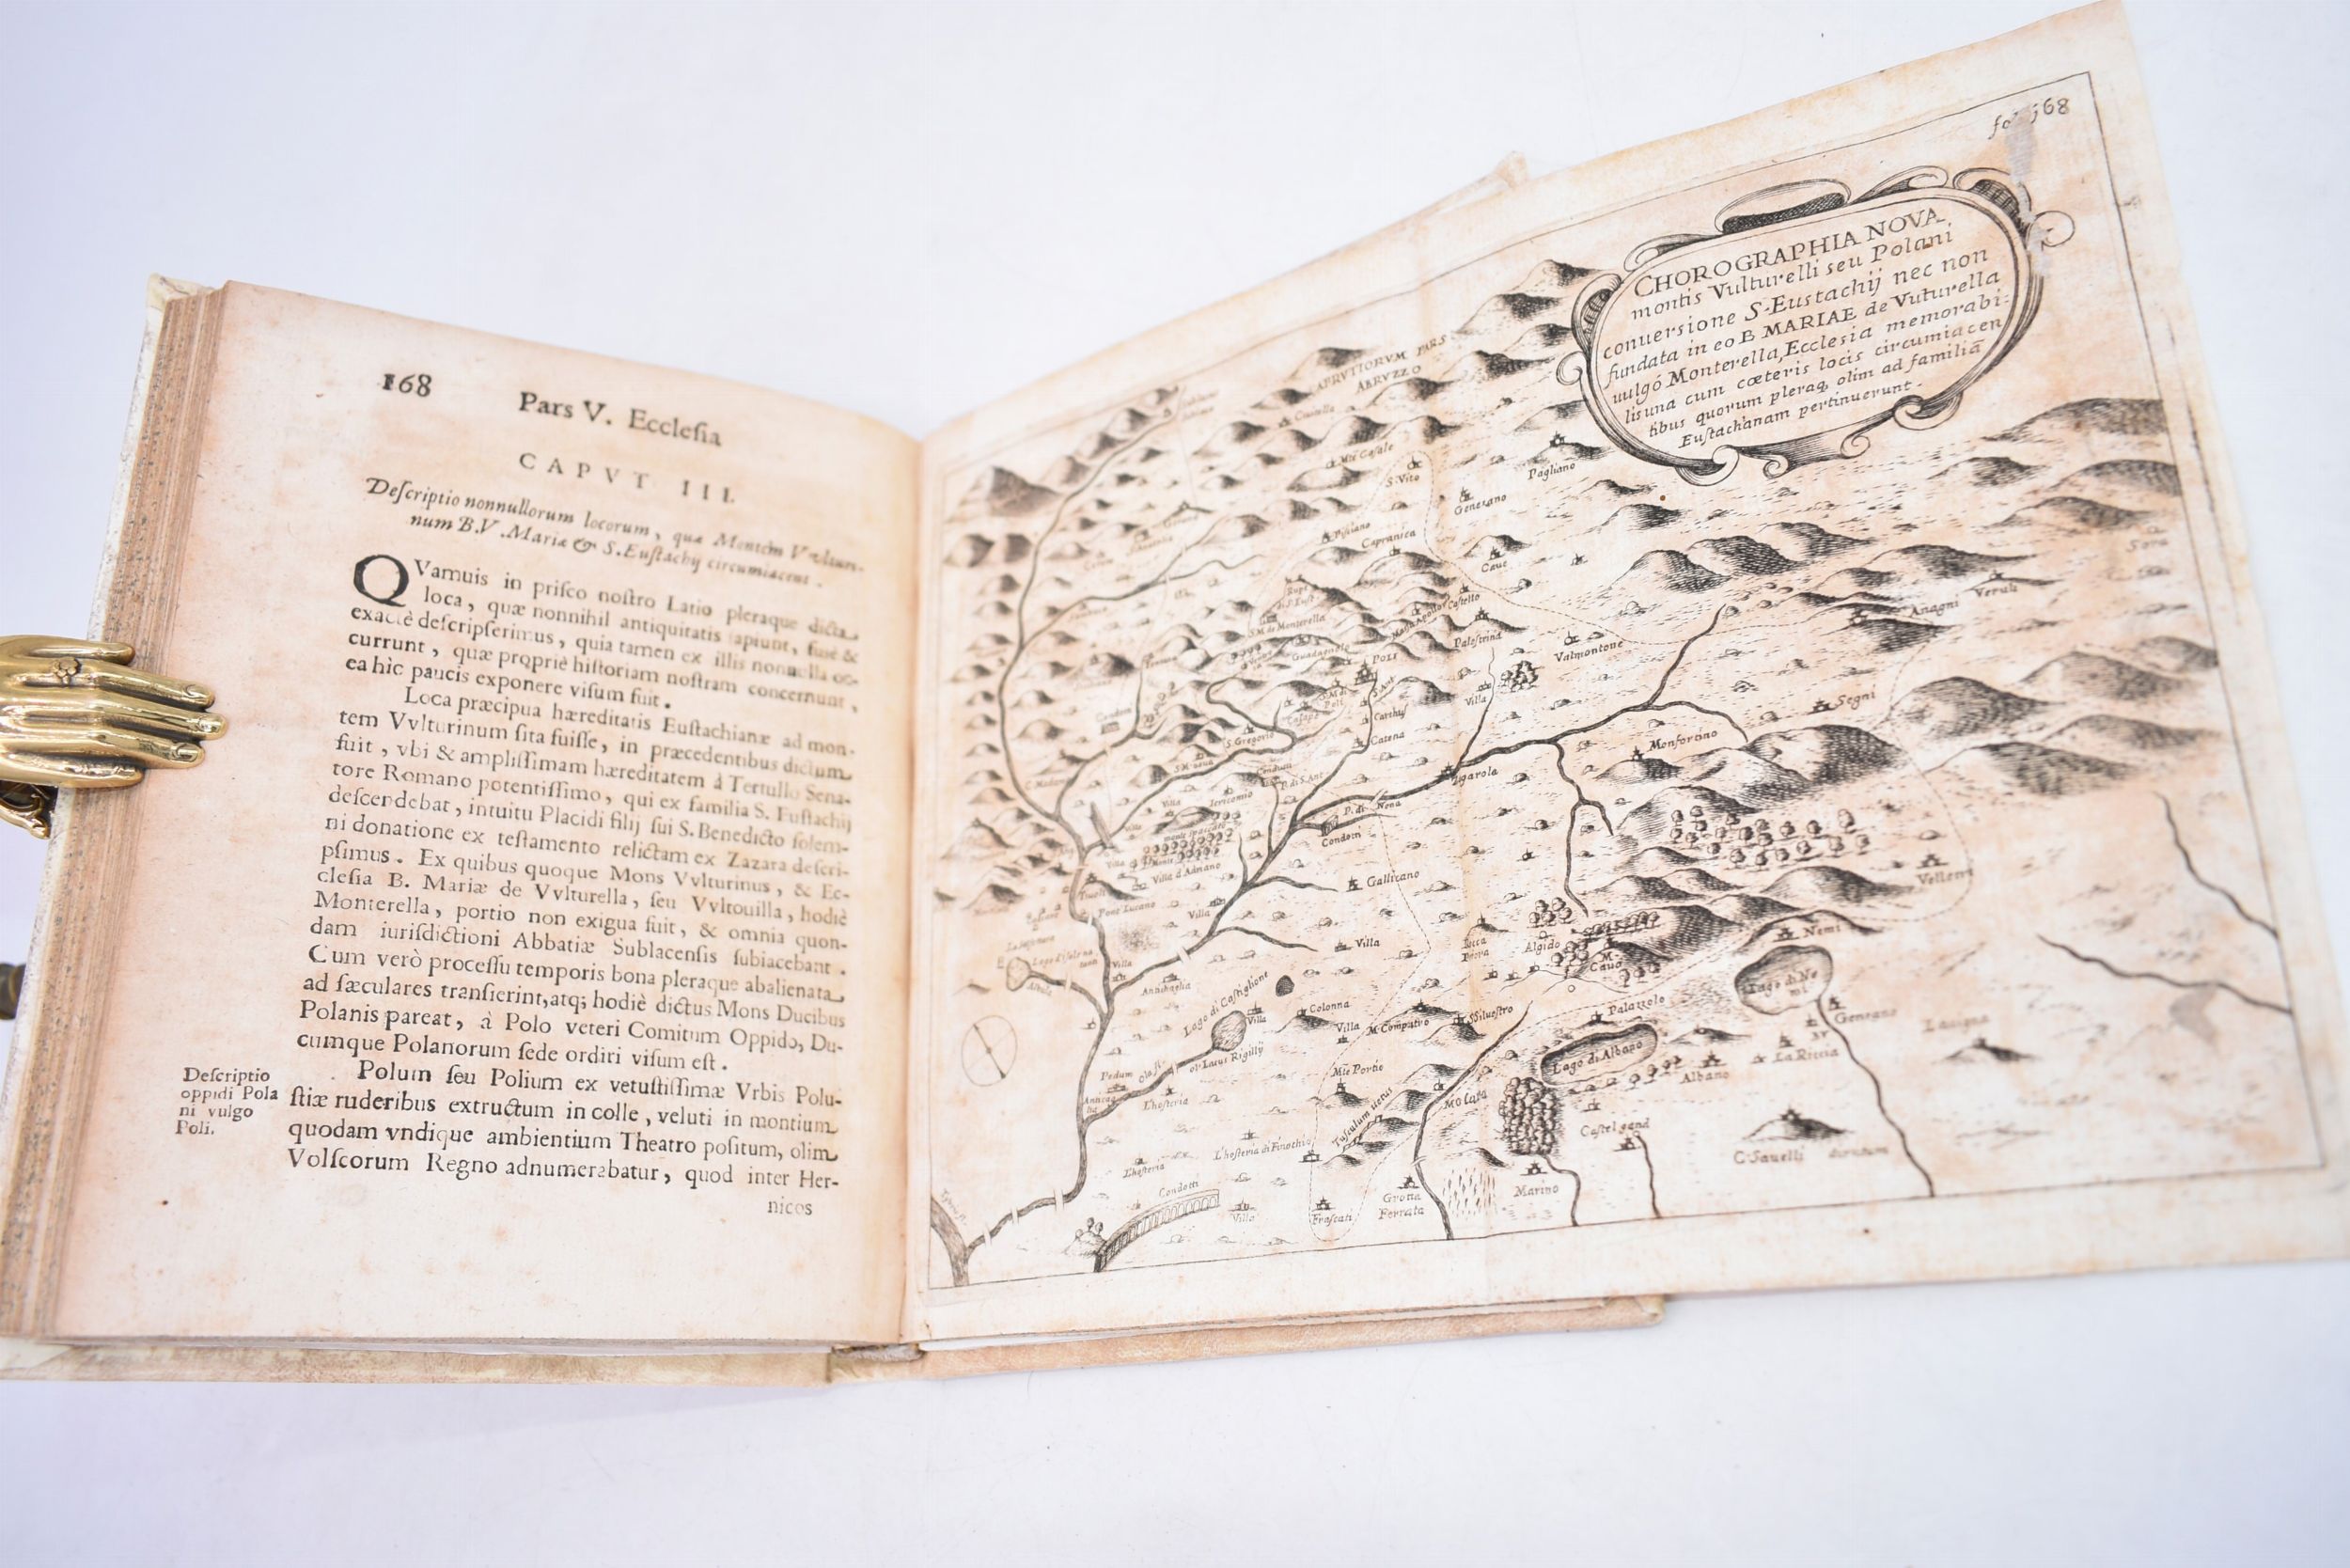 168 Pars V. Ecclesia
CAPVT III.
Descriptio nonnullorum locorum, quæ Montem Vultur-
num B.V. Mariæ & S. Eustachij circumiacent.
QVamuis in prisco nostro Latio pleraque dicta
loca, quæ nonnihil antiquitatis sapiunt, fusè &
exactè descripserimus, quia tamen ex illis nonnulla oc-
currunt, quæ propriè historiam nostram concernunt,
ea hìc paucis exponere visum fuit.
Loca præcipua hæreditatis Eustachianæ ad mon-
tem Vvlturinum sita fuisse, in præcedentibus dictum
fuit, vbi & amplissimam hæreditatem à Tertullo Sena-
tore Romano potentissimo, qui ex familia S. Eustachij
descendebat, intuitu Placidi filij sui S. Benedicto solem-
ni donatione ex testamento relictam ex Zazara descri-
psimus. Ex quibus quoque Mons Vvlturinus, & Ec-
clesia B. Mariæ de Vvlturella, seu Vvltouilla, hodiè
Monterella, portio non exigua fuit, & omnia quon-
dam iurisdictioni Abbatiæ Sublacensis subiacebant.
Cum verò processu temporis bona pleraque abalienata
ad sæculares transierint, atq; hodiè dictus Mons Ducibus
Polanis pareat, à Polo veteri Comitum Oppido, Du-
cumque Polanorum sede ordiri visum est.
Descriptio
oppidi Pola
ni vulgo
Poli.
Polum seu Polium ex vetustissimæ Vrbis Polu-
stiæ ruderibus extructum in colle, veluti in montium
quodam vndique ambientium Theatro positum, olim
Volscorum Regno adnumerabatur, quod inter Her-
nicos
168
CHOROGRAPHIA NOVA
montis Vulturelli seu Polani
conuersione S. Eustachij nec non
fundata in eo B MARIAE de Vuturella
uulgó Monterella, Ecclesia memorabi:
lis una cum cœteris locis circumiacen
tibus quorum pleraq, olim ad familiā
Eustachanam pertinuerunt.
APRVTIORVM PARS
ABRVZZO
S. Vito
Genezano
Pagliano
Pisiano
Capranica
Caue
Castello
S.M. de Monterella
Guadagnolo
Poli
Palestrina
Valmontone
Anagni
Veruli
Sora
Villa
S. Gregorio
Catena
Segni
Monfortino
Zagarola
P. di Nona
Condotti
Villa d Adriano
Pont Lucano
Gallicano
Velletri
Villa
Villa
Algido
M. Cauo
Nemi
Lago di Ne
mi
Lago di Castiglione
Villa
Colonna
Villa
M. Compatro
S. Siluestro
Palazzolo
Genzano
Lacus Rigilly
Mte Portio
Lago di Albano
Albano
La Riccia
L'hosteria
Tusculum uetus
Molara
Castel gand
C. Sauelli dirutum
L'hosteria
L'hosteria di Finochio
Condotti
Villa
Frascati
Grotta
Ferrata
Marino